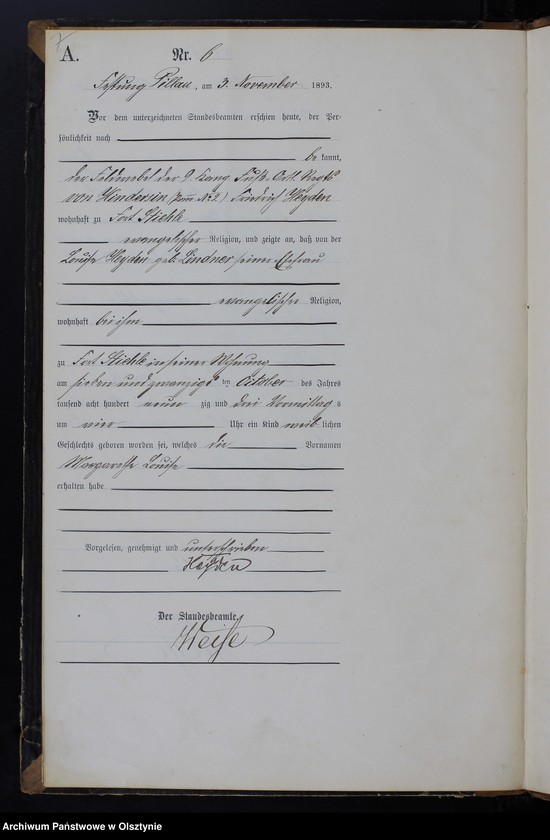 A.
Nr. 6
Festung Pillau, am 3. November 1893.
Vor dem unterzeichneten Standesbeamten erschien heute, der Per-
sönlichkeit nach
be kannt,
der Feldwebel der 9. Comp. Fuß-Artl. Regts
von Hindersin (Pomm. No 2) Friedrich Heyden
wohnhaft zu Fort Stiehle
evangelischer Religion, und zeigte an, daß von der
Louise Heyden geb. Lindner seiner Ehefrau
evangelischer Religion,
wohnhaft bei ihm
zu Fort Stiehle in seiner Wohnung
am sieben und zwanzigs ten October des Jahres
tausend acht hundert neun zig und drei Vormittag s
um vier Uhr ein Kind weib lichen
Geschlechts geboren worden sei, welches die Vornamen
Margarethe Louise
erhalten habe
Vorgelesen, genehmigt und unterschrieben
Heyden
Der Standesbeamte.
Archiwum Państwowe w Olsztynie